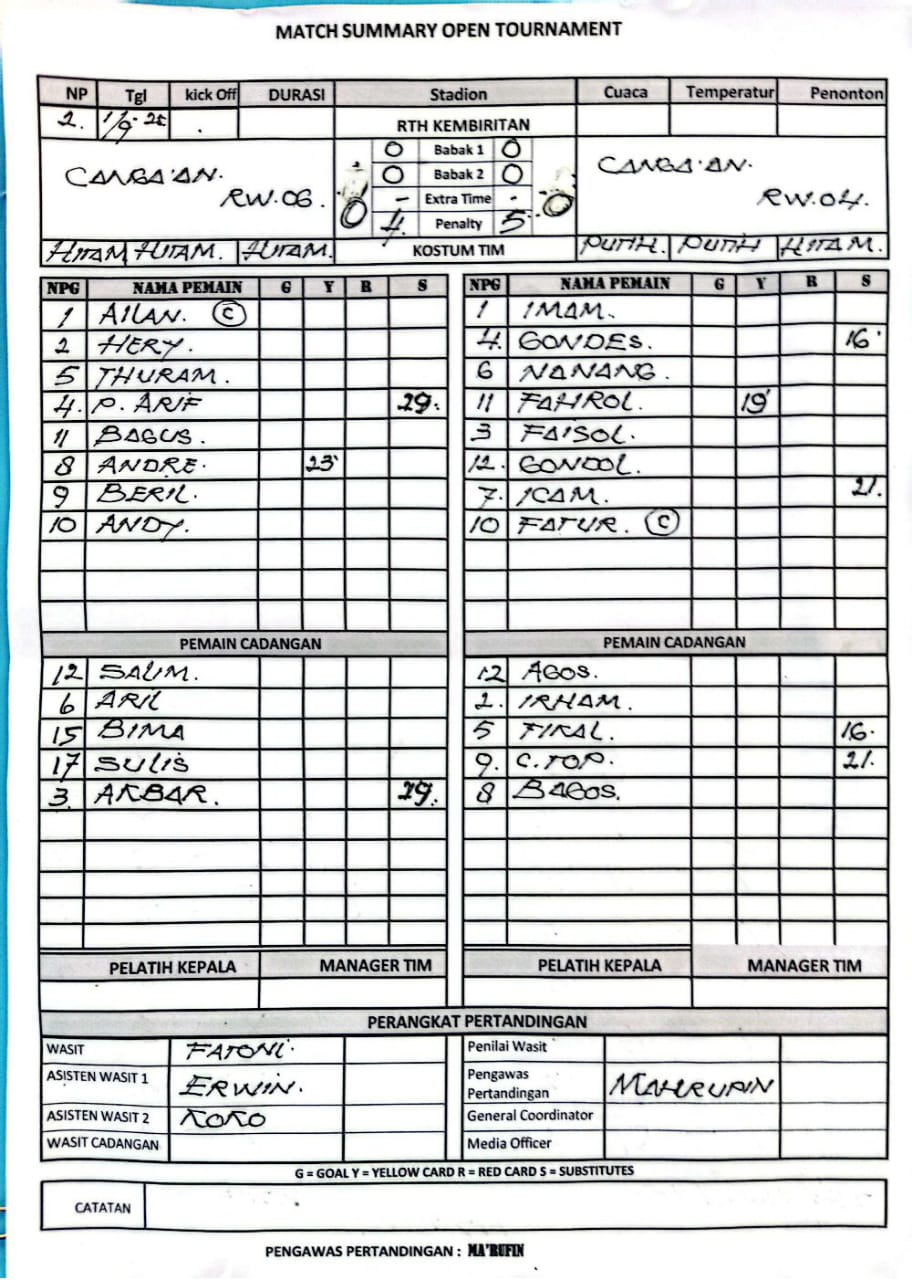 MATCH SUMMARY OPEN TOURNAMENT
NP Tgl kick Off DURASI Stadion Cuaca Temperatur Penonton
2. 1/9-25 . RTH KEMBIRITAN
CANGA'AN. RW.06.
0 Babak 1 0
0 Babak 2 0
- Extra Time -
0 0
4. Penalty 5
CANGA'AN. RW.04.
HITAM HITAM. HITAM. KOSTUM TIM PUTIH. PUTIH HITAM.
NPG NAMA PEMAIN G Y R S NPG NAMA PEMAIN G Y R S
1 AILAN. C 1 IMAM.
2 HERY. 4. GONDES. 16'
5 THURAM. 6 NANANG.
4. P. ARIF 29. 11 FAHROL. 19'
11 BAGUS. 3 FAISOL.
8 ANDRE. 23' 12. GONDOL.
9 BERIL. 7. ICAM. 21.
10 ANDY. 10 FATUR. C
PEMAIN CADANGAN PEMAIN CADANGAN
12 SALIM. 12 AGOS.
6 ARIL 2. IRHAM.
15 BIMA 5 FIKAL. 16.
17 SULIS 9. C.TOP. 21.
3. AKBAR. 29. 8 BAGOS.
PELATIH KEPALA MANAGER TIM PELATIH KEPALA MANAGER TIM
PERANGKAT PERTANDINGAN
WASIT FATONI. Penilai Wasit
ASISTEN WASIT 1 ERWIN. Pengawas Pertandingan MAHRUPIN
ASISTEN WASIT 2 KOKO General Coordinator
WASIT CADANGAN Media Officer
G = GOAL Y = YELLOW CARD R = RED CARD S = SUBSTITUTES
CATATAN
PENGAWAS PERTANDINGAN : MA'RUFIN